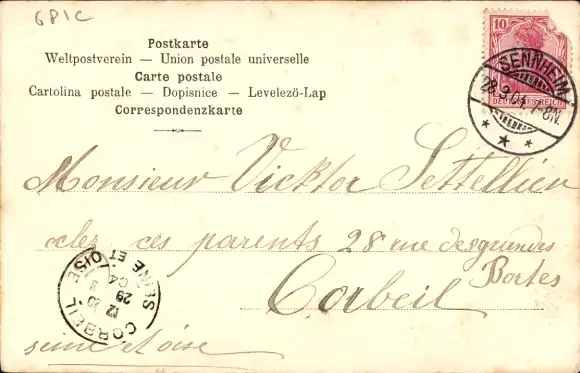 GP1C
Postkarte
Weltpostverein — Union postale universelle
Carte postale
Cartolina postale — Dopisnice — Levelező-Lap
Correspondenzkarte
10
DEUTSCHES REICH
SENNHEIM
28.3.04. 7-8N.
Monsieur Vicktor Settellien
chez ces parents 28 rue des grandes
Bortes
Corbeil
seine et oise
CORBEIL
SEINE ET OISE
12 20
29 3
04